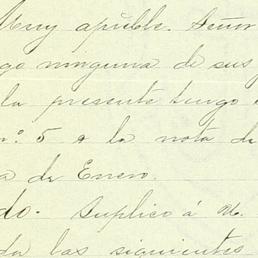 Muy apible. Señor
go ninguna de sus
la presente tengo
nº 5 a la nota de
a de Enero.
do. Suplico á U.
da las siguientes